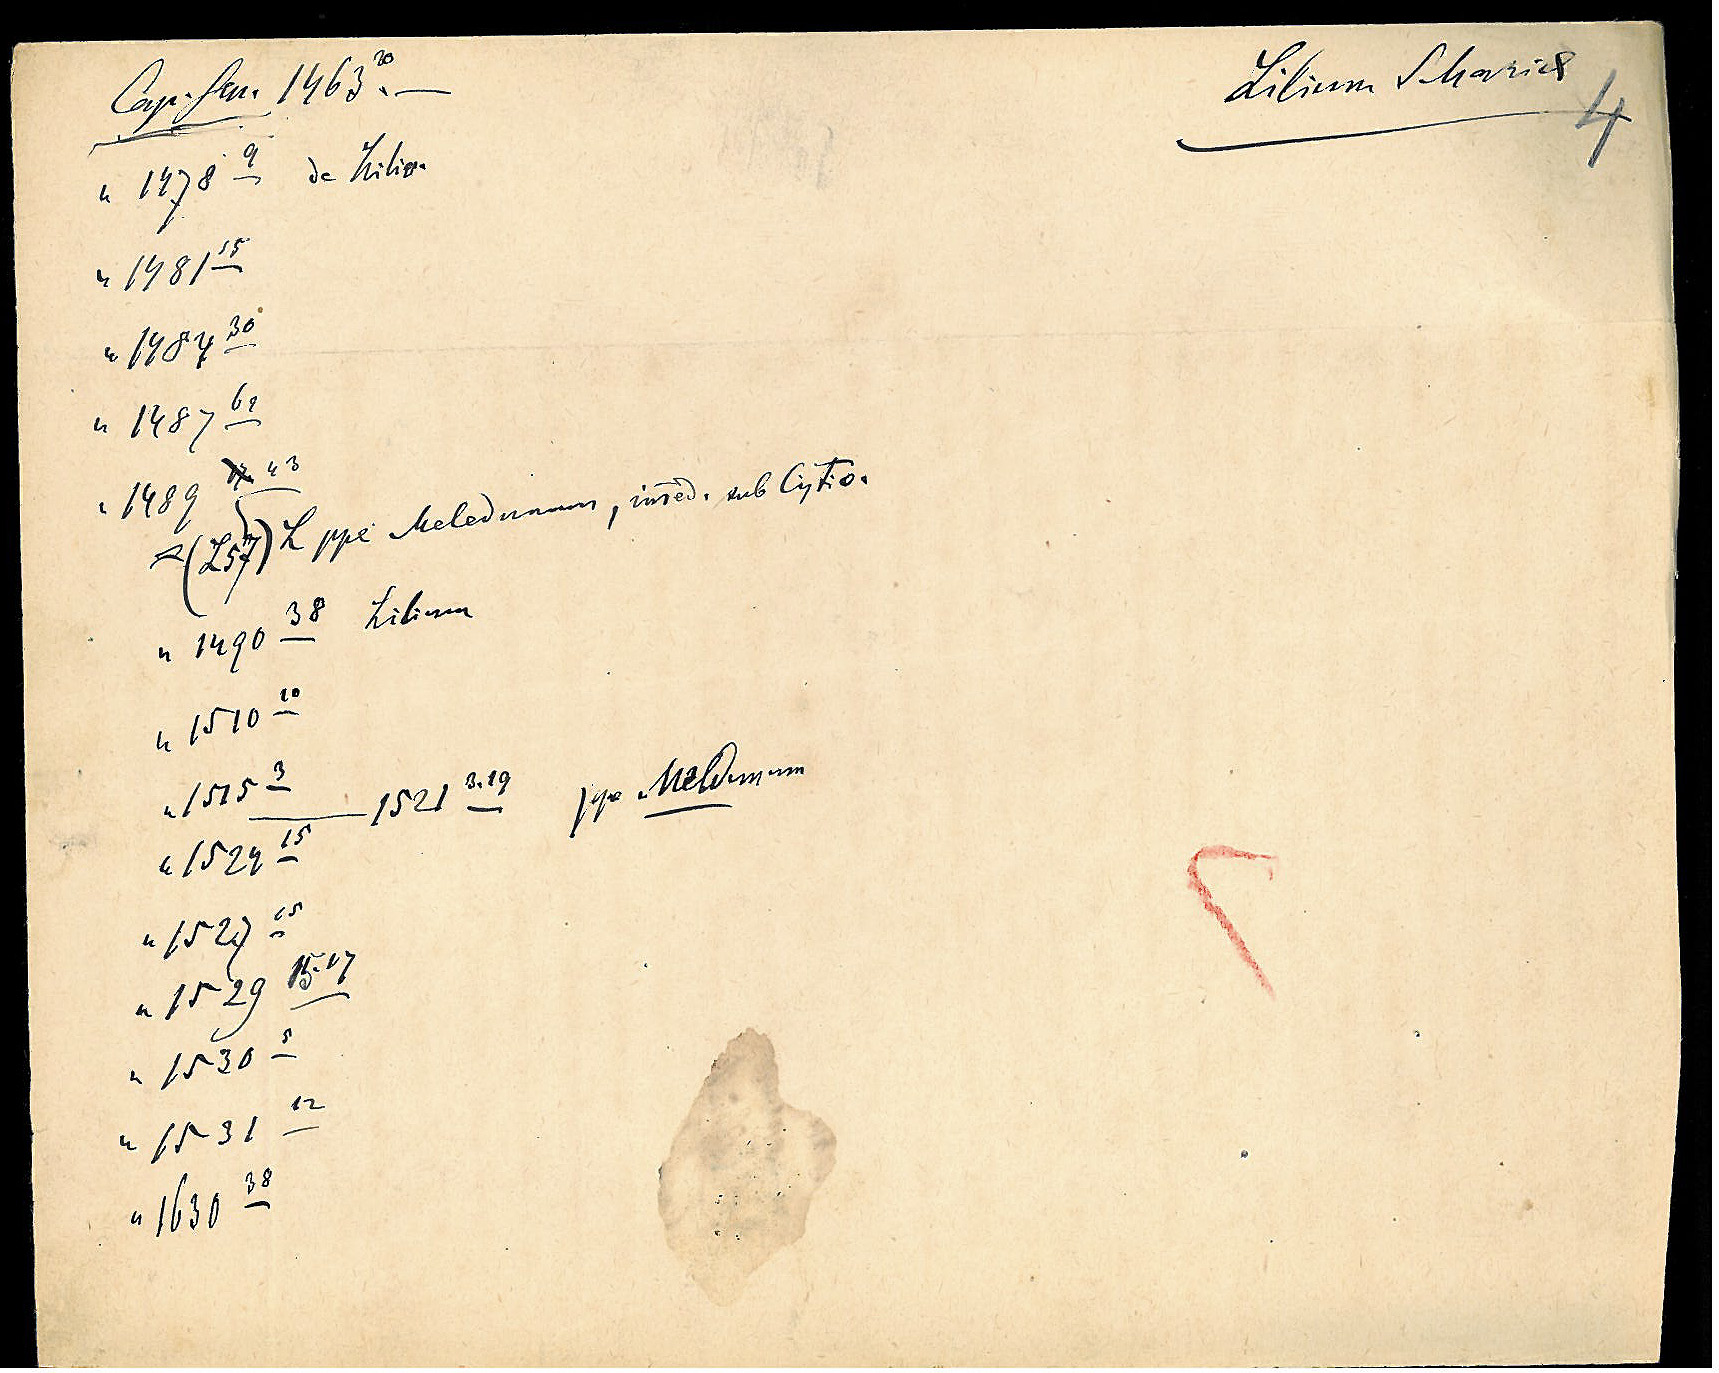 Lilium S. Mariae
4
Cap. Gen. 1463 20. —
" 1478 9 de Lilio.
" 1481 55
" 1484 30
" 1487 62
" 1489 43
(L57) L ppe Meledunum, sub Cystio.
" 1490 38 Lilium
" 1510 10
" 1515 3 — 1521 3.19 ppe Meldunum
" 1524 15
" 1527 15
" 1529 15.17
" 1530 5
" 1531 12
" 1630 38